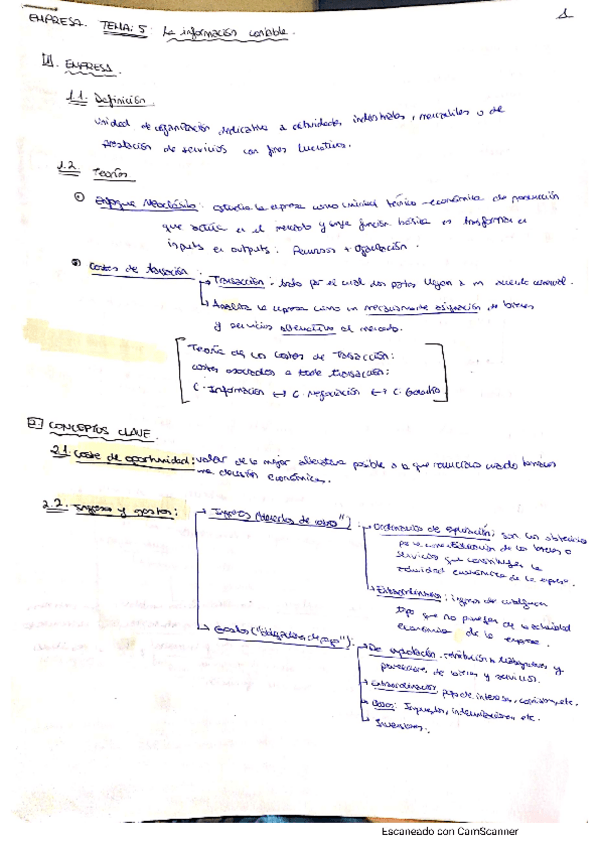 EMPRESA. TEMA: 5: La información contable.
1
1. EMPRESA.
1.1. Definición.
Unidad de organización dedicada a actividades industriales, mercantiles o de
prestación de servicios con fines lucrativos.
1.2. Teorías
Enfoque Neoclásico: estudia la empresa como unidad técnico-económica de producción
que actúa en el mercado y cuya función básica es transformar
inputs en outputs: Recursos + Organización.
Costes de transacción: Transacción: acto por el cual dos partes llegan a un acuerdo comercial.
Analiza la empresa como un mecanismo asignación de bienes
y servicios alternativo al mercado.
Teoría de los costes de Transacción:
costes asociados a toda transacción:
C. Información ↔ C. Negociación ↔ C. Garantía
2. CONCEPTOS CLAVE.
2.1. Coste de oportunidad: valor de la mejor alternativa posible a la que renunciamos cuando tomamos
una decisión económica.
2.2. Ingresos y gastos:
Ingresos ("derechos de cobro"):
Ordinarios de explotación: son los obtenidos
por la comercialización de los bienes o
servicios que constituyen la
actividad económica de la empresa.
Extraordinarios: ingresos de cualquier
tipo que no procedan de la actividad
económica de la empresa.
Gastos ("obligaciones de pago"):
De explotación: retribución a trabajadores y
proveedores de bienes y servicios.
Extraordinarios: pago de intereses, comisiones, etc.
Otros: Impuestos, indemnizaciones, etc.
Inversiones.
Escaneado con CamScanner